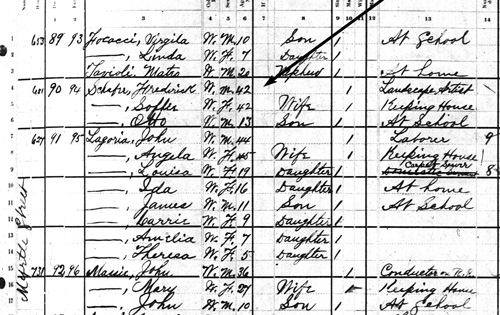 1 653 89 93 Hocacci, Virgila W. M. 10 Son At School
2 —, Linda W. F. 7 Daughter 1
3 Tavioli, Mateo W. M. 20 Nephew 1 At home
4 681 90 94 Schafer, Frederick W. M. 42 1 Landscape Artist
5 —, Sophie W. F. 42 Wife 1 Keeping House
6 —, Otto W. M. 13 Son 1 At School
7 627 91 95 Lagoria, John W. M. 44 1 Laborer 9
8 —, Angela W. F. 45 Wife 1 Keeping House
9 —, Louisa W. F. 19 Daughter 1 Carpet Sewer 8
10 —, Ida W. F. 16 Daughter 1 At home
11 —, James W. M. 11 Son 1 At School
12 —, Carrie W. F. 9 Daughter 1
13 —, Amelia W. F. 7 Daughter 1
14 —, Theresa W. F. 5 Daughter 1
15 731 92 96 Massie, John W. M. 36 1 Conductor on R.R.
—, Mary W. F. 27 Wife 1 Keeping House
—, John W. M. 10 Son 1 At School
Myrtle Street